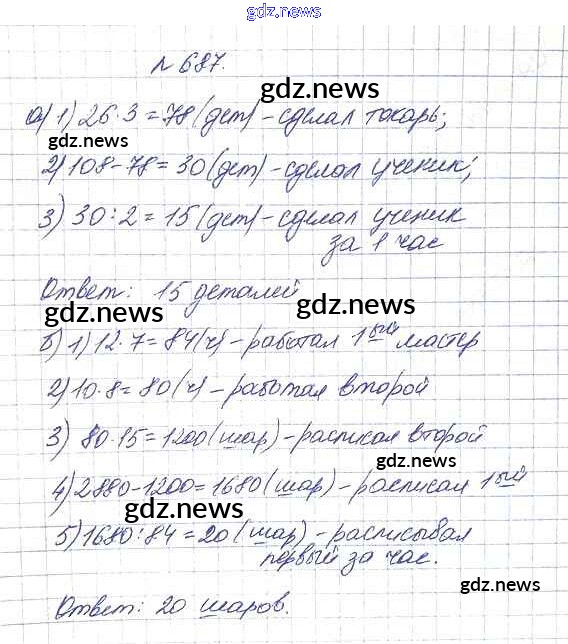 gdz.news
№ 687.
gdz.news
а) 1) 26·3 = 78 (дет) - сделал токарь;
2) 108 - 78 = 30 (дет) - сделал ученик;
gdz.news
3) 30 : 2 = 15 (дет) - сделал ученик
за 1 час
Ответ: 15 деталей
gdz.news gdz.news
б) 1) 12·7 = 84 (ч) - работал 1ый мастер
2) 10·8 = 80 (ч) - работал второй
3) 80·15 = 1200 (шар) - расписал второй
gdz.news
4) 2880 - 1200 = 1680 (шар) - расписал 1ый
gdz.news
5) 1680 : 84 = 20 (шар) - расписывал
первый за час.
gdz.news
Ответ: 20 шаров.
gdz.news